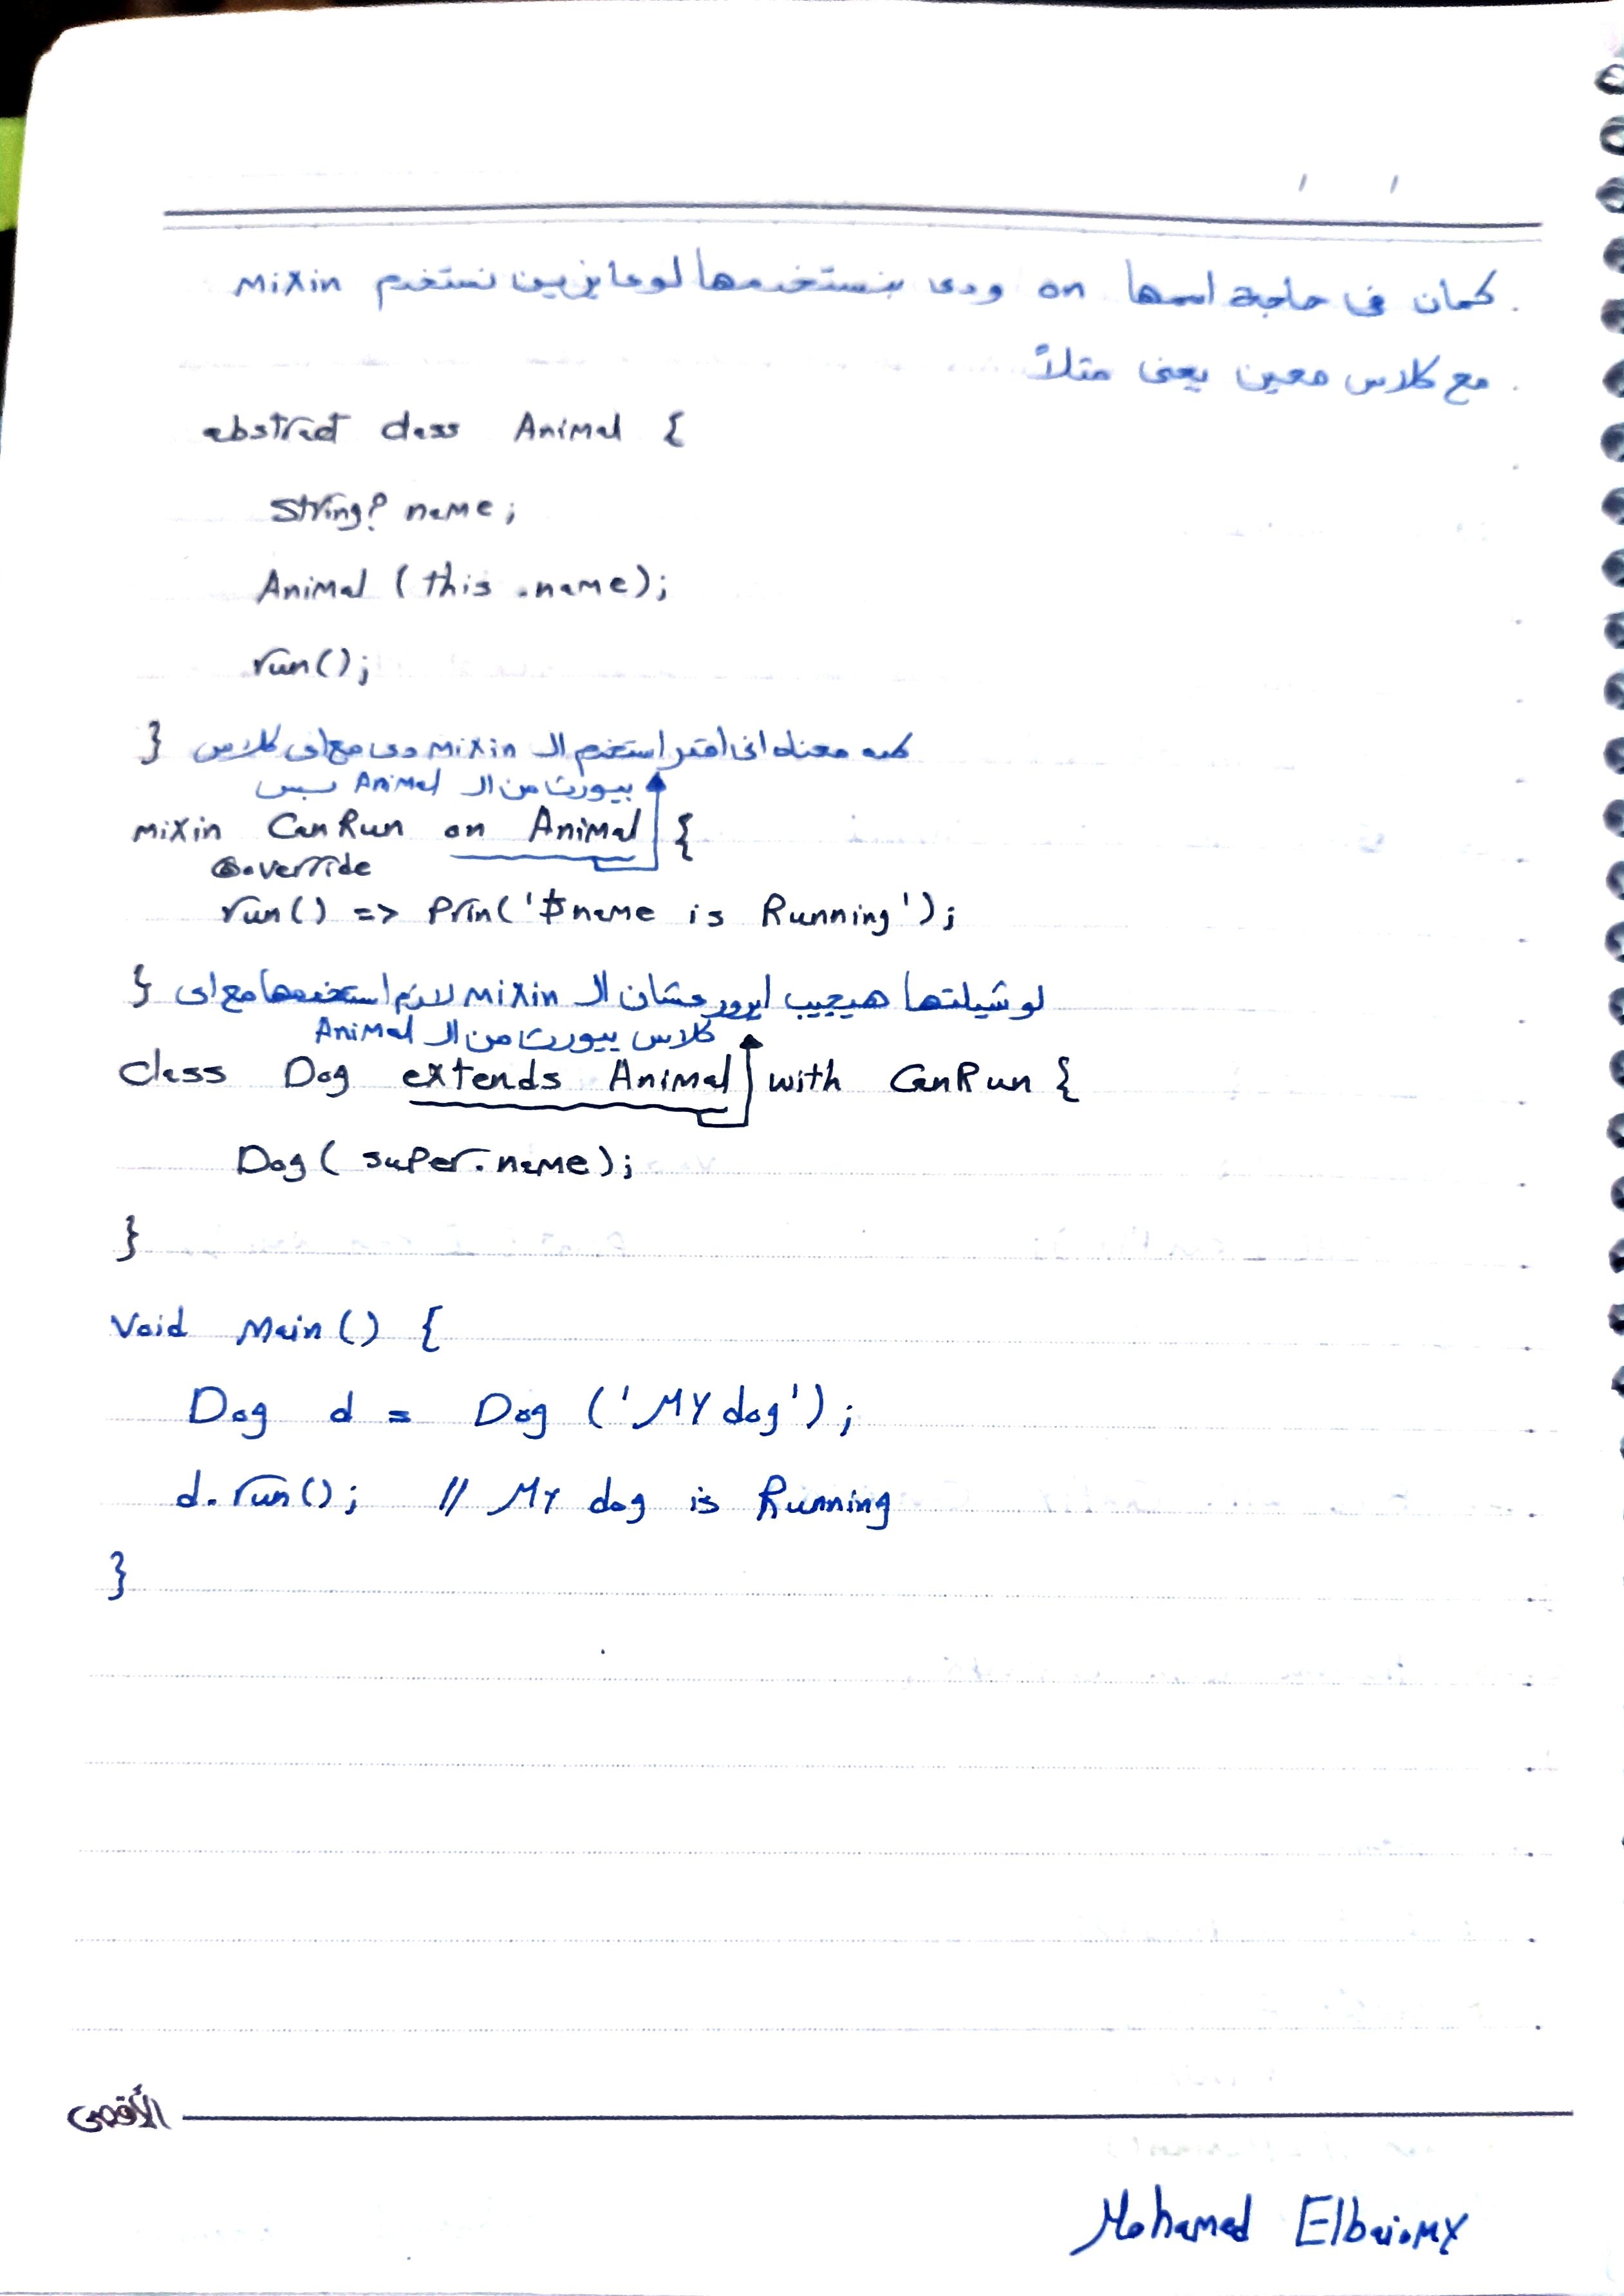 كمان في حاجة اسمها on ودى بنستخدمها لو عايزين نستخدم mixin
مع كلاس معين يعنى مثلاً
abstract class Animal {
String? name;
Animal (this.name);
run();
} كده معناه انى اقدر استخدم الـ mixin دى مع اى كلاس
بيورث من الـ Animal بس
mixin CanRun on Animal {
@override
run() => Prin('$name is Running');
} لو شيلتها هيجيب ايرور عشان الـ mixin لازم استخدمها مع اى
كلاس بيورث من الـ Animal
class Dog extends Animal with CanRun {
Dog( super.name);
}
Void Main() {
Dog d = Dog ('MY dog');
d.run(); // MY dog is Running
}
الأقصى
Mohamed Elbaiomy